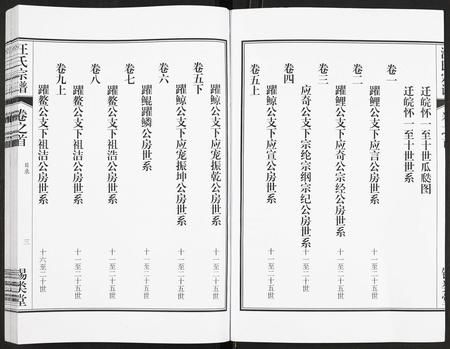 卷一
迁皖怀一至十世瓜瓞图
迁皖怀一至十世世系
卷二
躍鲤公支下应言公房世系 十一至二十五世
卷三
躍鲤公支下应奇公宗经公房世系 十一至二十五世
卷四
应奇公支下宗纶宗纲宗纪公房世系 十一至二十五世
卷五上
躍鲸公支下应宣公房世系 十一至二十五世
卷五下
躍鲸公支下应宠振乾公房世系 十一至二十五世
卷六
躍鲸公支下应宠振坤公房世系 十一至二十五世
卷七
躍鲲躍鳞公房世系 十一至二十五世
卷八
躍鳌公支下祖浩公房世系 十一至二十五世
卷九上
躍鳌公支下祖洁公房世系 十六至二十五世
汪氏宗谱
卷之首
目录
三
锡类堂